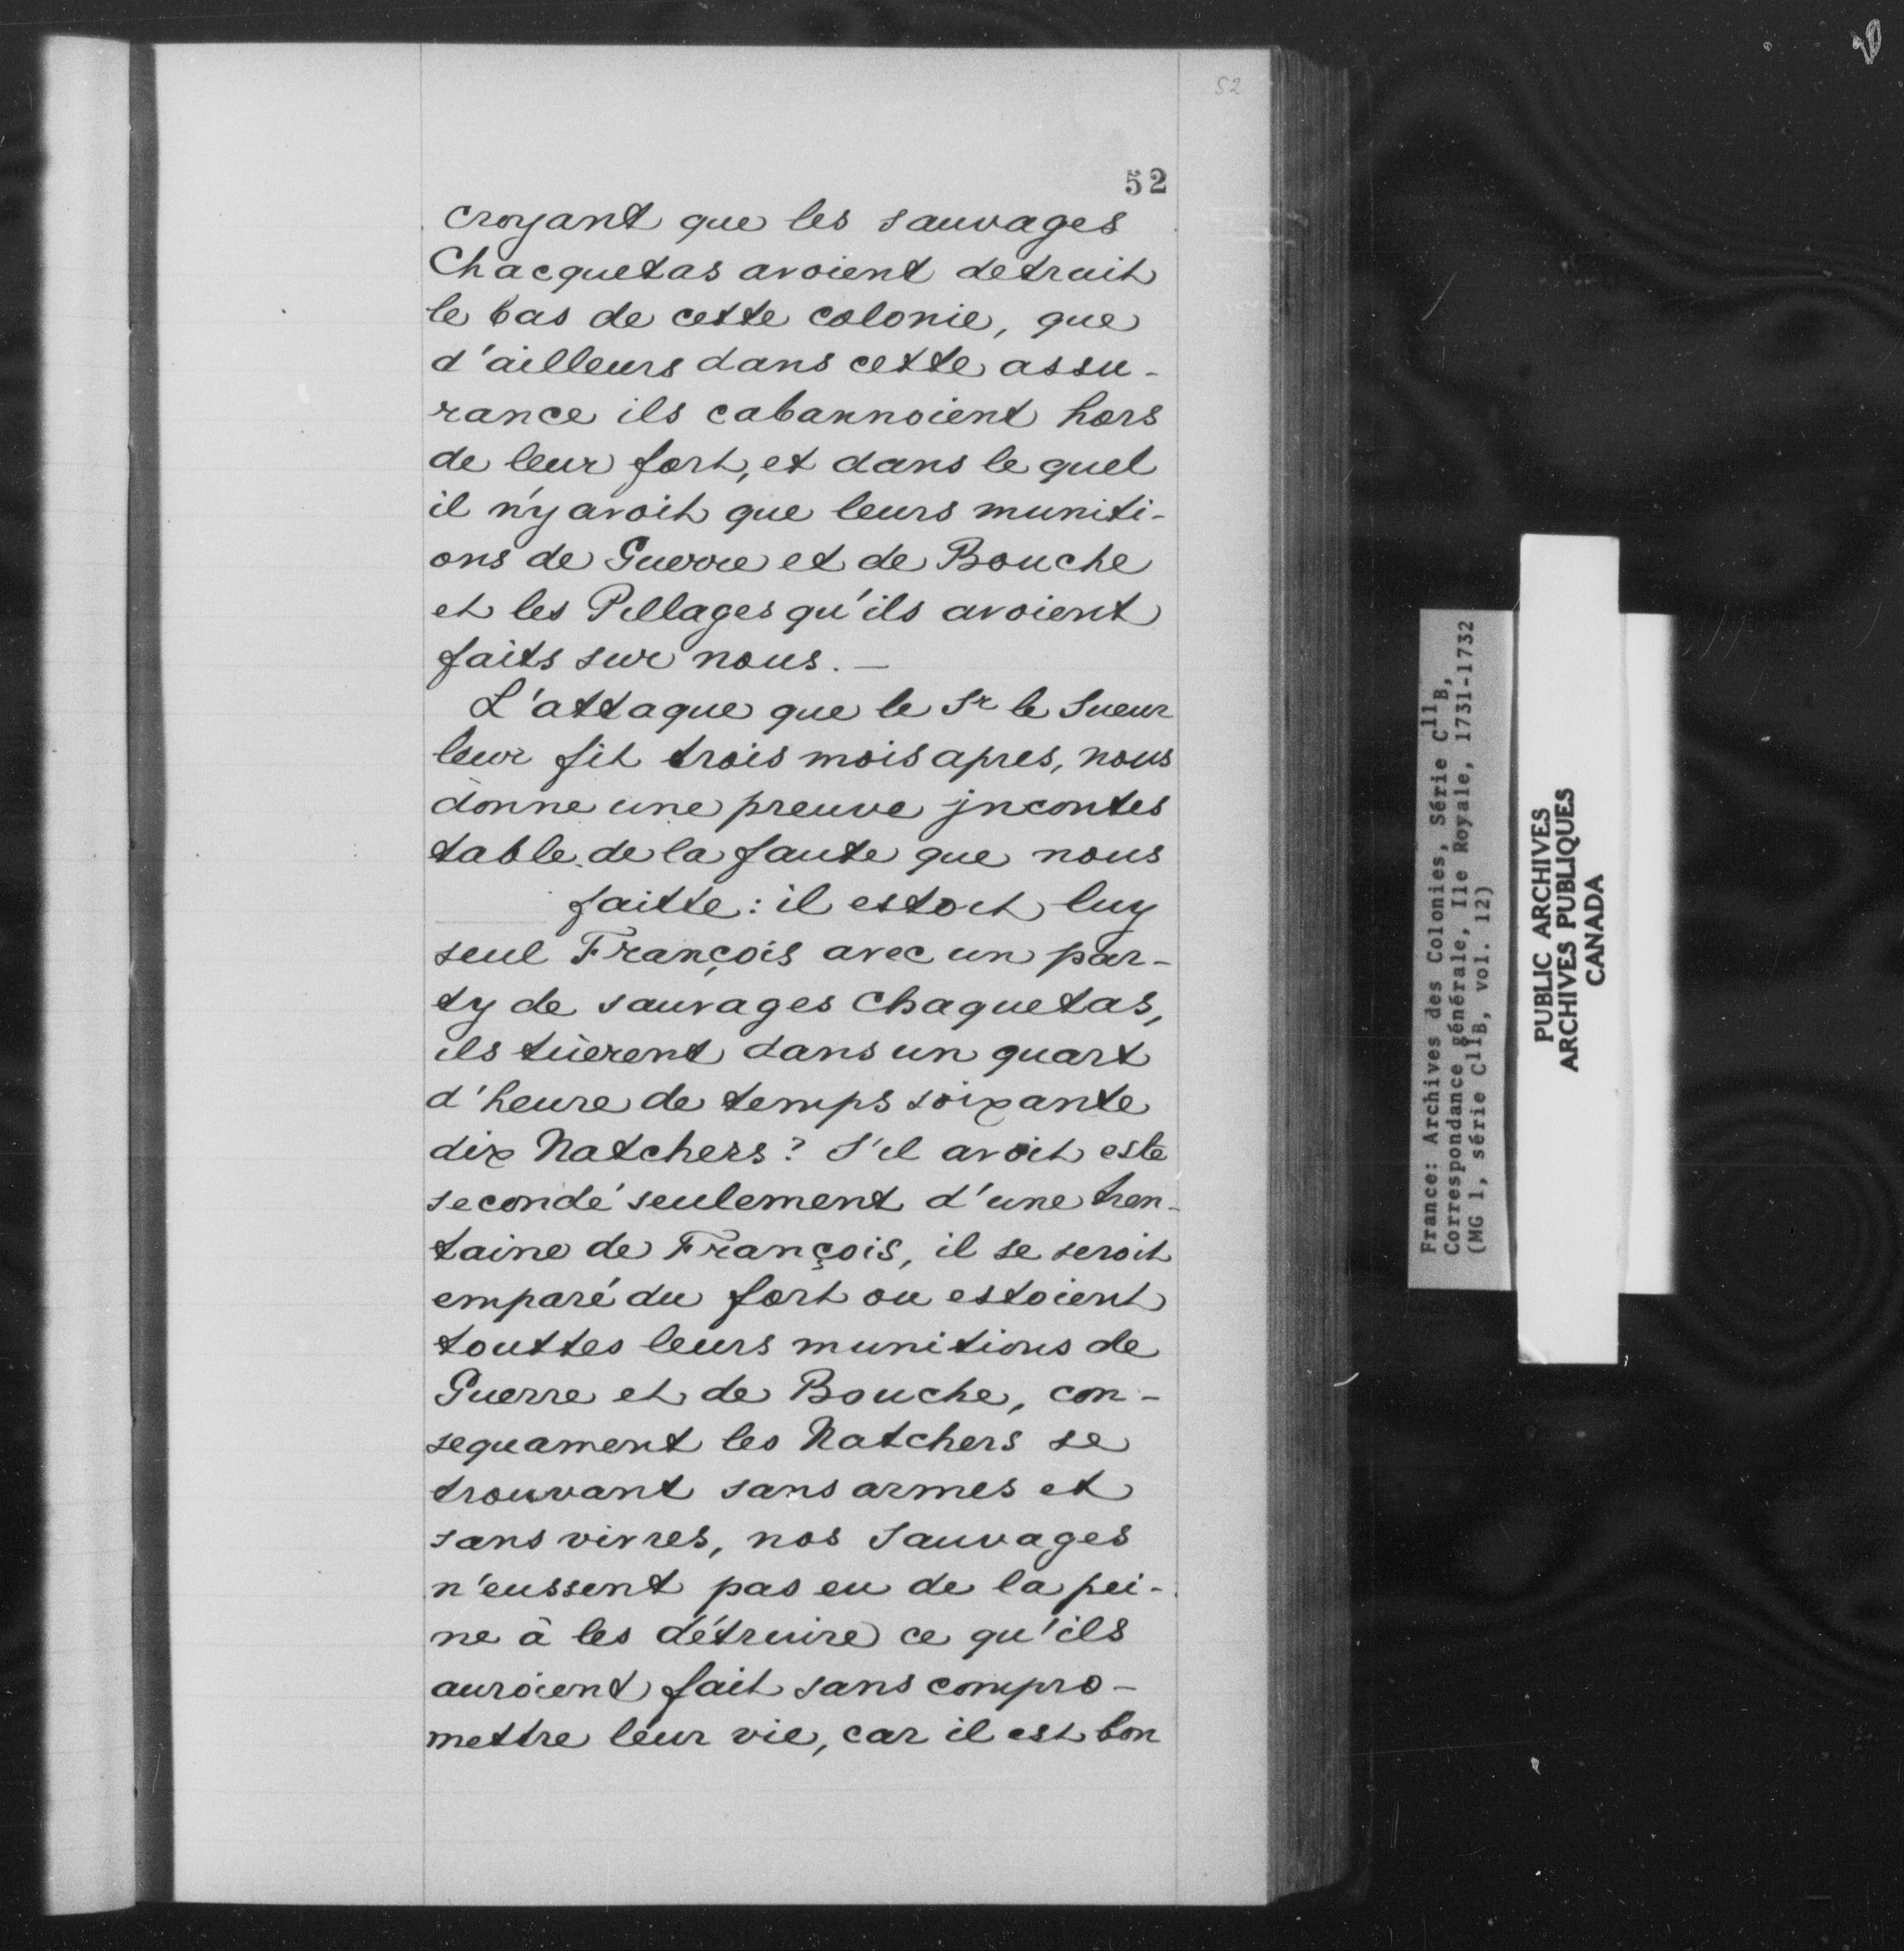 52
52
croyant que les sauvages
Chacquetas avoient detruit
le bas de cette colonie, que
d'ailleurs dans cette assu-
rance ils cabannoient hors
de leur fort, et dans le quel
il n'y avoit que leurs muniti-
ons de Guerre et de Bouche
et les Pillages qu'ils avoient
faits sur nous. —
L'attaque que le Sr le Sueur
leur fit trois mois apres, nous
donne une preuve jncontes
table de la faute que nous
faitte : il estoit luy
seul François avec un par-
ty de sauvages Chaquetas,
ils tüerent dans un quart
d'heure de temps soixante
dix Natchers ? S'il avoit esté
secondé seulement d'une tren-
taine de François, il se seroit
emparé du fort ou estoient
touttes leurs munitions de
Guerre et de Bouche, con-
sequament les Natchers se
trouvant sans armes et
sans vivres, nos Sauvages
n'eussent pas eu de la pei-
ne à les détruire ce qu'ils
auroient fait sans compro-
mettre leur vie, car il est bon
France: Archives des Colonies, Série C11B,
Correspondance générale, Ile Royale, 1731-1732
(MG 1, série C11B, vol. 12)
PUBLIC ARCHIVES
ARCHIVES PUBLIQUES
CANADA